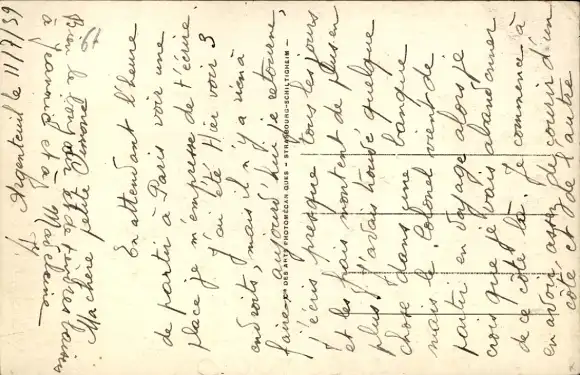 Argenteuil le 11/7/39
Ma chère petite Simone
En attendant l'heure
de partir à Paris voir une
place je m'empresse de t'écrire.
J'ai été Hier voir 3
endroits, mais il n'y a rien à
faire - aujourd'hui je retourne,
j'écris presque tous les jours
et les frais montent de plus en
plus. J'avais trouvé quelque
chose dans une banque
mais le Colonel vient de
partir en voyage alors je
crois que je vais abandonner
de ce côté là. Je commence à
en avoir assez de courir d'un
côté et de l'autre
Bien le bonjour
à Yvonne et à Madeleine
DES ARTS PHOTOMÉCANIQUES - STRASBOURG-SCHILTIGHEIM